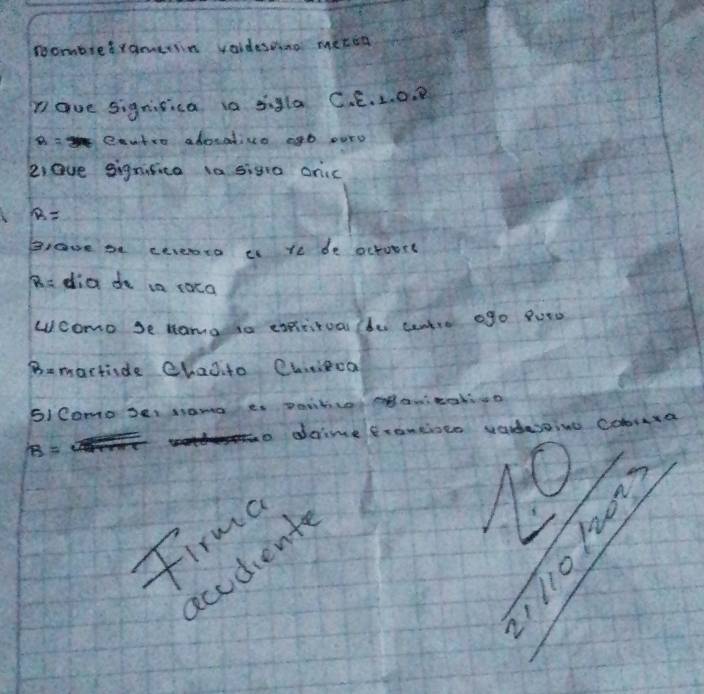 valdespino meza
1) Que significa la sigla C.E.I.O.P
R= Centro adocativo ogo puro
2) Que significa la sigla onic
R=
3) Que se celebra el 12 de octubre
R= dia de la raca
4) Como se llama la espiritual del centro ogo Puro
R= martinde Chajito Chiripua
5) Como se llama es politico organizativo
R= Jaime francisco valdespino Cabrera
Firma
acudiente
1.0
21/10/2023